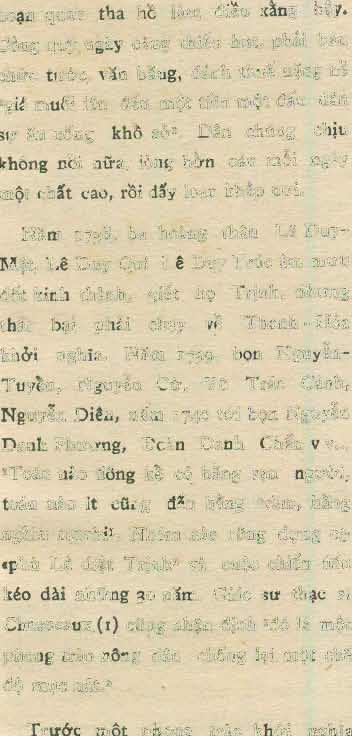 quan tha hồ làm điều xằng bậy.
Công quỹ ngày càng thiếu hụt, phải bán
chức tước, văn bằng, đánh thuế nặng nề
giá muối lên đến một tiền một đấu dân
sự ăn uống khổ sở. Dân chúng chịu
không nổi nữa, lòng hờn oán mỗi ngày
một chất cao, rồi dấy loạn khắp nơi.
Năm ba hoàng thân Lê Duy-
Mật, Lê Duy Quí Lê Duy Trúc âm mưu
đốt kinh thành, giết họ Trịnh, nhưng
thất bại phải chạy về Thanh-Hóa
khởi nghĩa. Năm bọn Nguyễn-
Tuyền, Nguyễn Cừ, Vũ Trác Oánh,
Nguyễn Diên, năm 1740 tới bọn Nguyễn
Danh Phương, Đoàn Danh Chấn v v...
Toán nào đông kể có hàng vạn người,
toán nào ít cũng đến hàng trăm, hàng
nghìn người. Nhóm nào cũng dựng cờ
«phù Lê diệt Trịnh» và cuộc chiến đấu
kéo dài những 30 năm. Giáo sư thạc sĩ
Chesneaux (1) cũng nhận định «đó là một
phong trào nông dân chống lại một chế
độ mục nát.»
Trước một phong trào khởi nghĩa